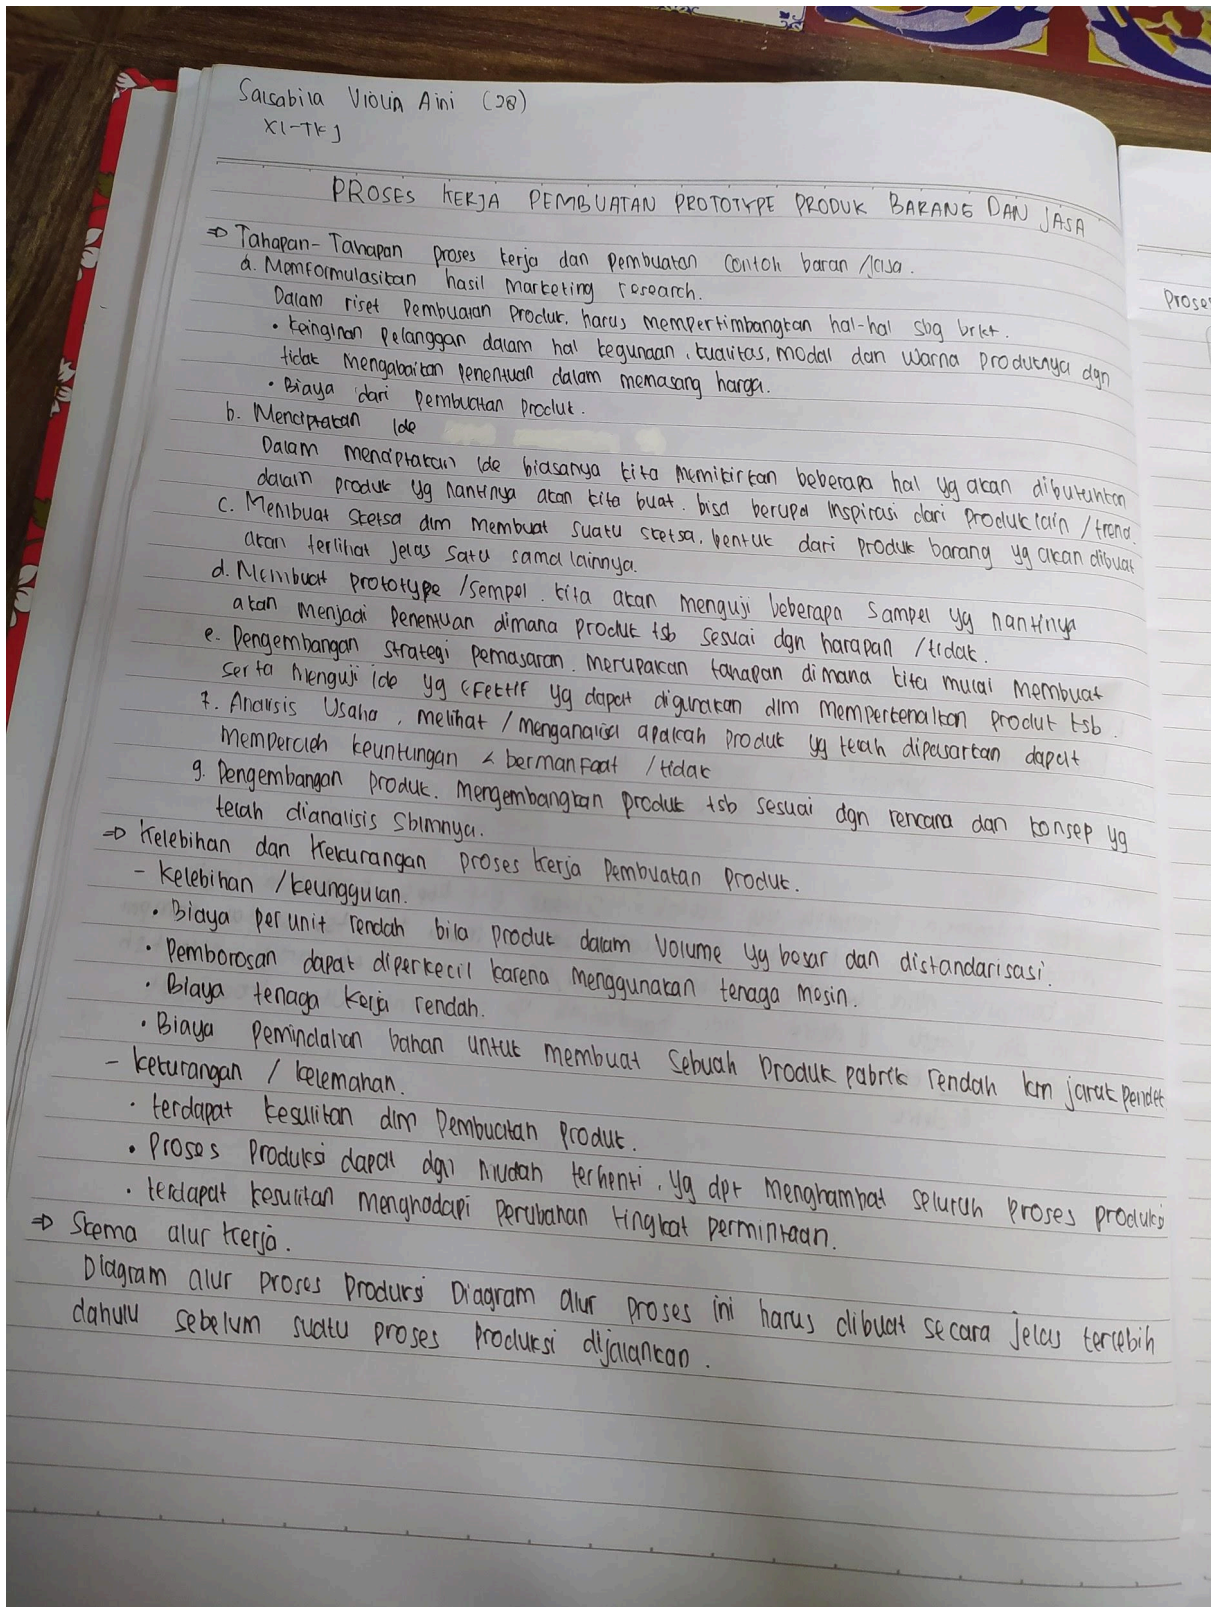 Salsabila Violin Aini (28)
XI-TKJ
PROSES KERJA PEMBUATAN PROTOTYPE PRODUK BARANG DAN JASA
⇒ Tahapan-Tahapan proses kerja dan pembuatan contoh baran /jasa.
a. Memformulasikan hasil marketing research.
Dalam riset pembuatan produk, harus mempertimbangkan hal-hal sbg brkt.
• keinginan pelanggan dalam hal kegunaan, kualitas, modal dan warna produknya dgn
tidak mengabaikan penentuan dalam memasang harga.
• Biaya dari pembuatan produk.
b. Menciptakan Ide
Dalam menciptakan ide biasanya kita memikirkan beberapa hal yg akan dibutuhkan
dalam produk yg nantinya akan kita buat. bisa berupa inspirasi dari produk lain /trend.
c. Membuat sketsa dlm membuat suatu sketsa, bentuk dari produk barang yg akan dibuat
akan terlihat jelas satu sama lainnya.
d. Membuat prototype /sempel. kita akan menguji beberapa sampel yg nantinya
akan menjadi penentuan dimana produk tsb sesuai dgn harapan /tidak.
e. Pengembangan strategi pemasaran. merupakan tahapan dimana kita mulai membuat
serta menguji ide yg efektif yg dapat digunakan dlm mempertenalkan produk tsb.
f. Analisis Usaha, melihat /menganalisa apakah produk yg telah dipasarkan dapat
memperoleh keuntungan & bermanfaat /tidak
g. Pengembangan produk. mengembangkan produk tsb sesuai dgn rencana dan konsep yg
telah dianalisis sblmnya.
⇒ Kelebihan dan kekurangan proses kerja pembuatan produk.
- Kelebihan /keunggulan.
• Biaya per unit rendah bila produk dalam volume yg besar dan distandarisasi.
• Pemborosan dapat diperkecil karena menggunakan tenaga mesin.
• Biaya tenaga kerja rendah.
• Biaya pemindahan bahan untuk membuat sebuah produk pabrik rendah krn jarak pendek
- kekurangan / kelemahan.
• terdapat kesulitan dlm pembuatan produk.
• Proses produksi dapat dgn mudah terhenti, yg dpt menghambat seluruh proses produksi
• terdapat kesulitan menghadapi perubahan tingkat permintaan.
⇒ Skema alur kerja.
Diagram alur proses produksi Diagram alur proses ini harus dibuat secara jelas terlebih
dahulu sebelum suatu proses produksi dijalankan.